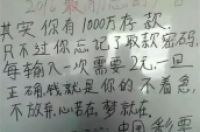 2016最
其实你有1000万存款.
只不过你忘记了取款密码.
每输入一次需要2元,一旦
正确,钱就是你的不着急,
不放弃,心若在,梦就在.
中国彩票